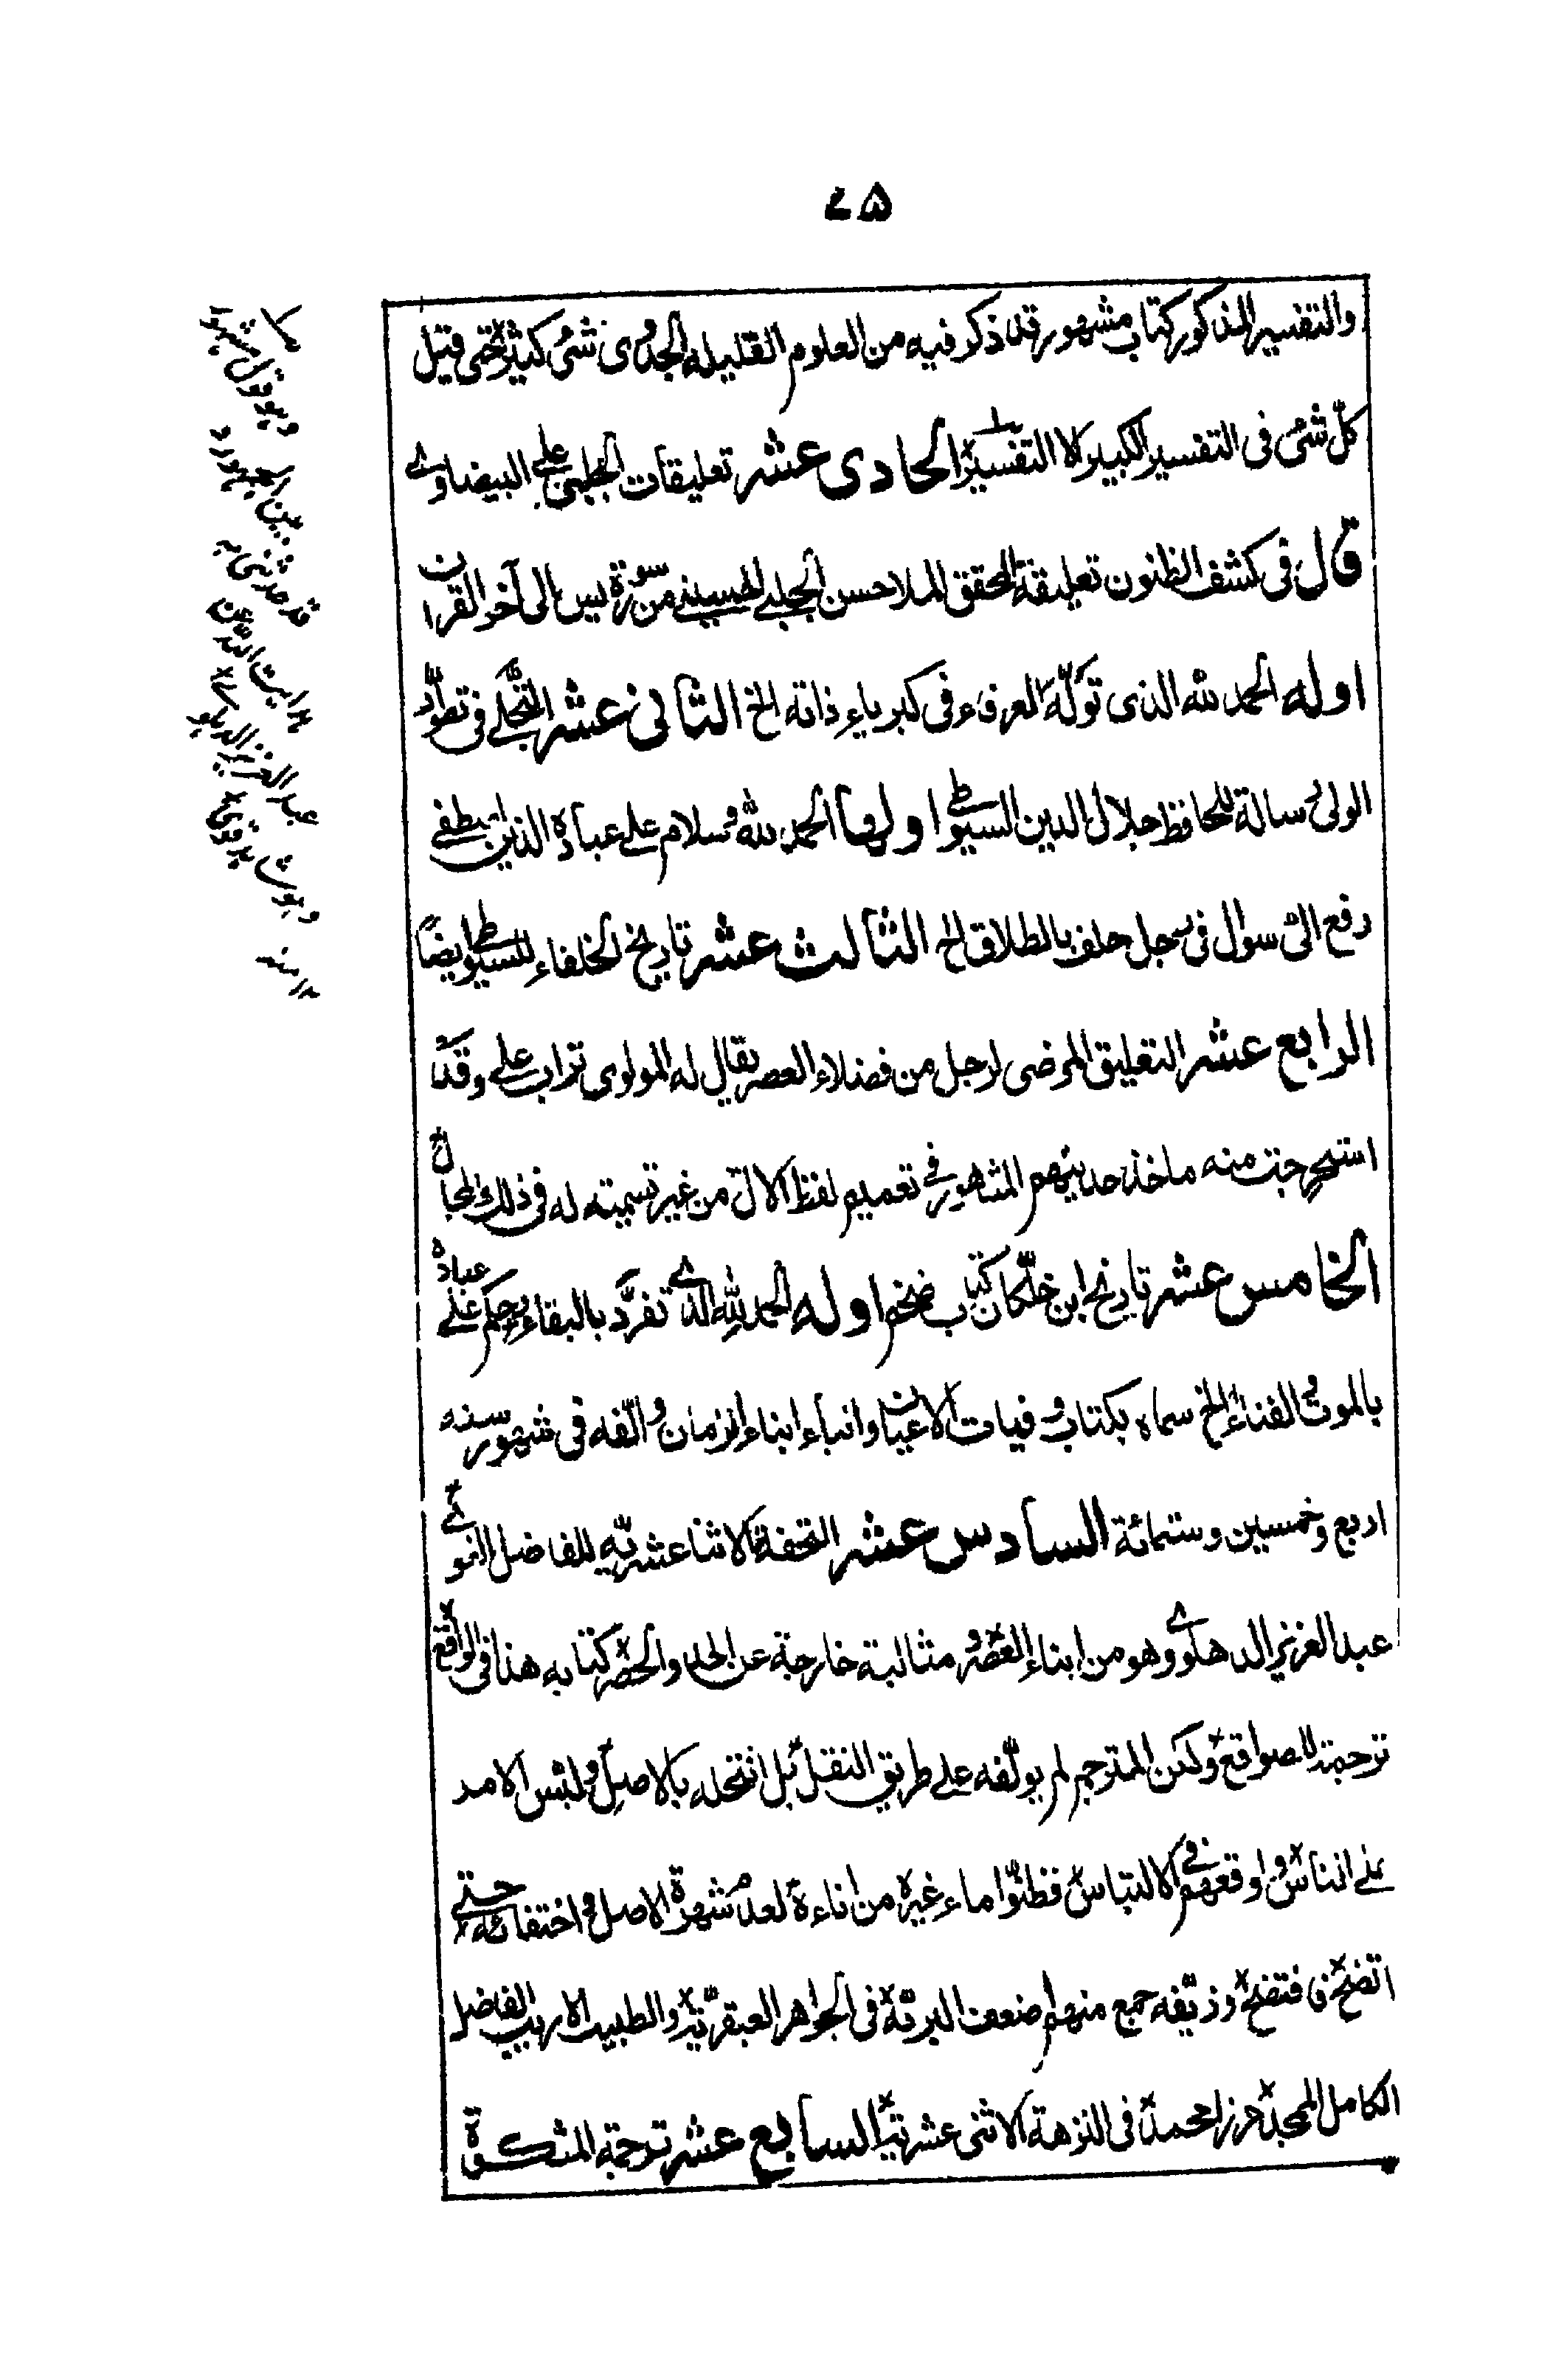 ٧٥
والتفسير المذكور كتاب مشهور قد ذكر فيه من العلوم القليلة الجدوى شئ كثير حتى قيل
كلّ شئ فى التفسير الكبير الا التفسير الحادى عشر تعليقات الچلپى على البيضاوے
قال فى كشف الظنون تعليقة المحقق الملا حسن الچلبے الحسينے من سورة يس الى آخر القران
اوله الحمد لله الذى توّله العرفاء فى كبرياء ذاته الخ الثانى عشر المنجلى فى تطوّر
الولى رسالة للحافظ جلال الدين السيوطے اولها الحمد لله وسلام على عباده الذين اصطفے
رفع الىّ سوال فى رجل حلف بالطلاق الخ الثالث عشر تاريخ الخلفاء للسيوطے ايضًا
الرابع عشر التعليق المرضى لرجل من فضلاء العصر يقال له المولوى تراب على وقد
استخرجت منه ماخذ حديثهم المشهور فى تعميم لفظ الال من غير تسميته له فى ذلك المجال
الخامس عشر تاريخ ابن خلّكان كتاب ضخم اوله الحمد لله الذے تفرّد بالبقاء وحكم على عباده
بالموت والفناء الخ سماه بكتاب وفيات الاعيان وانباء ابناء الزمان والّفه فى شهور سنه
اربع وخمسين وستمائة السادس عشر التحفة الاثنا عشريّه للفاضل النحوى
عبد العزيز الدهلوے وهو من ابناء العصر ومثالبة خارجة عن الحد والحصر كتابه هذا فى الواقع
ترجمة للصواقع ولكن المترجم لم يولّفه على طريق النقل بل انتحله بالاصل ولبّس الامر
على الناس واوقعهم فى الالتباس فظنّوا ماء غيره من اناءه لعدم شهرة الاصل واختفائه حتى
اتضح فافتضح وزيّفه جمع منهم اضعف البريّة فى الجواهر العبقريّة والطبيب الاريب الفاضل
الكامل الممجد مرزا محمد فى النزهة الاثنى عشرية السابع عشر ترجمة المشكوة